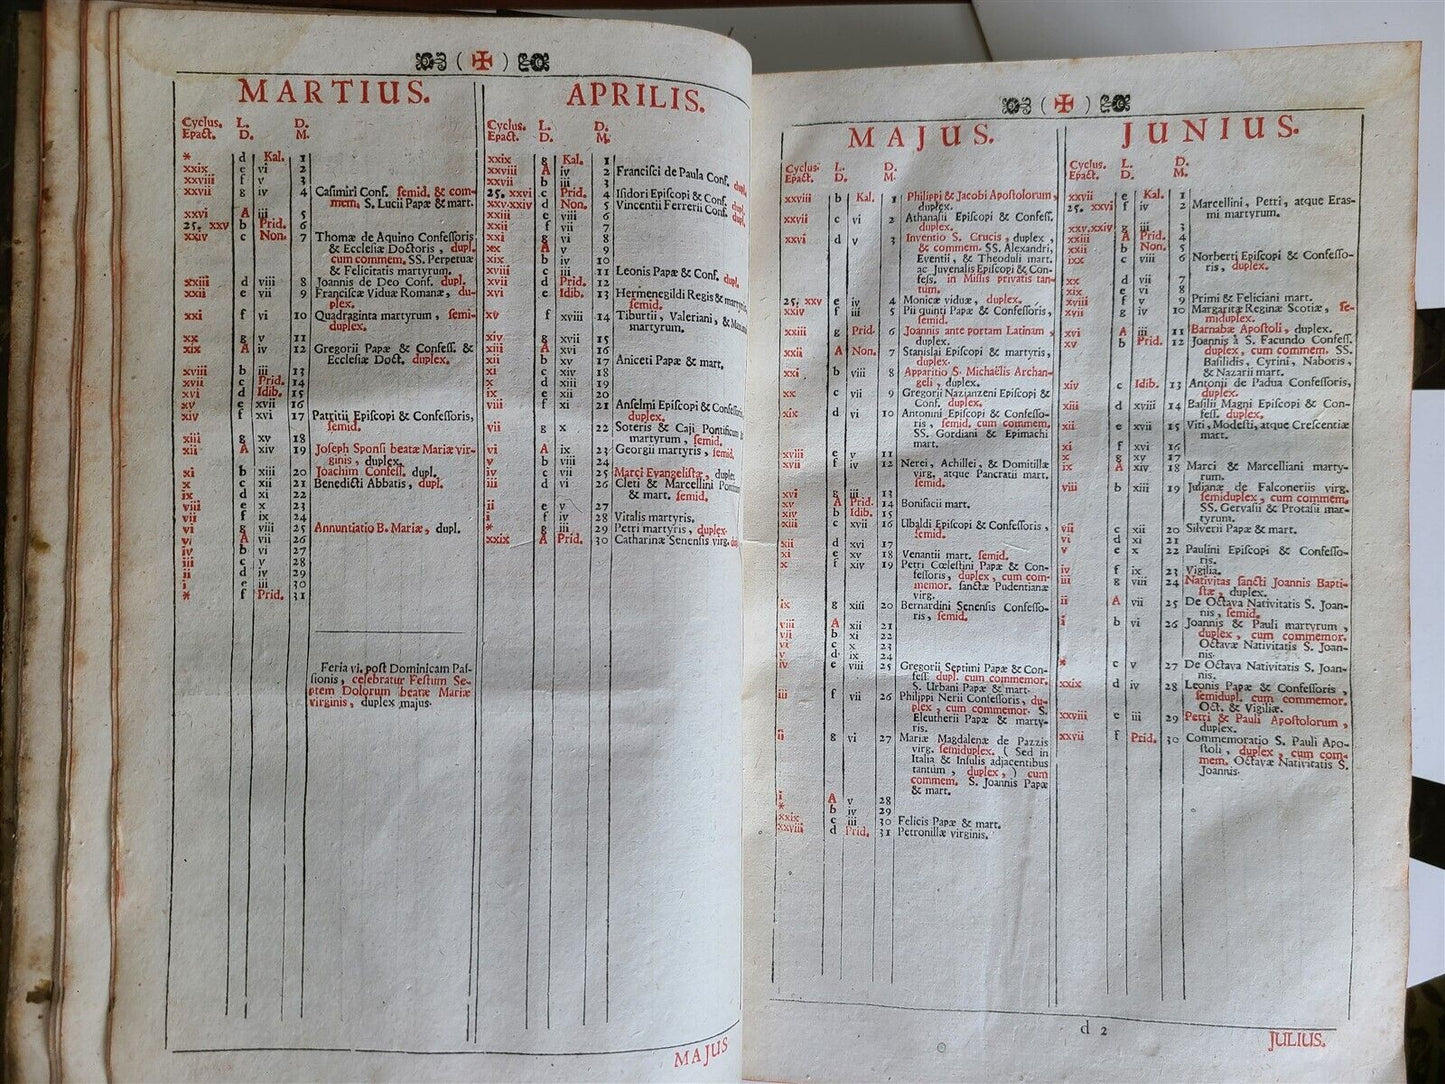 ( ✠ )
MARTIUS.
Cyclus. L. D.
Epact. D. M.
* d Kal. 1
xxix e vi 2
xxviii f v 3
xxvii g iv 4 Casimiri Conf. semid. & com-
mem. S. Lucii Papæ & mart.
xxvi A iii 5
25. xxv b Prid. 6
xxiv c Non. 7 Thomæ de Aquino Confessoris
& Ecclesiæ Doctoris, dupl.
cum commem. SS. Perpetuæ
& Felicitatis martyrum.
xxiii d viii 8 Joannis de Deo Conf. dupl.
xxii e vii 9 Franciscæ Viduæ Romanæ, du-
plex.
xxi f vi 10 Quadraginta martyrum, semi-
duplex.
xx g v 11
xix A iv 12 Gregorii Papæ & Confess. &
Ecclesiæ Doct. duplex.
xviii b iii 13
xvii c Prid. 14
xvi d Idib. 15
xv e xvii 16
xiv f xvi 17 Patritii Episcopi & Confessoris,
semid.
xiii g xv 18
xii A xiv 19 Joseph Sponsi beatæ Mariæ vir-
ginis, duplex.
xi b xiii 20 Joachim Confess. dupl.
x c xii 21 Benedicti Abbatis, dupl.
ix d xi 22
viii e x 23
vii f ix 24
vi g viii 25 Annuntiatio B. Mariæ, dupl.
v A vii 26
iv b vi 27
iii c v 28
ii d iv 29
i e iii 30
* f Prid. 31
Feria vi. post Dominicam Pas-
sionis, celebratur Festum Se-
ptem Dolorum beatæ Mariæ
virginis, duplex majus.
APRILIS.
Cyclus. L. D.
Epact. D. M.
xxix g Kal. 1
xxviii A iv 2 Francisci de Paula Conf. dupl.
xxvii b iii 3
25. xxvi c Prid. 4 Isidori Episcopi & Conf. dupl.
xxv.xxiv d Non. 5 Vincentii Ferrerii Conf. dupl.
xxiii e viii 6
xxii f vii 7
xxi g vi 8
xx A v 9
xix b iv 10
xviii c iii 11 Leonis Papæ & Conf. dupl.
xvii d Prid. 12
xvi e Idib. 13 Hermenegildi Regis & martyris,
semid.
xv f xviii 14 Tiburtii, Valeriani, &
martyrum.
xiv g xvii 15
xiii A xvi 16
xii b xv 17 Aniceti Papæ & mart.
xi c xiv 18
x d xiii 19
ix e xii 20
viii f xi 21 Anselmi Episcopi & Confessoris,
duplex.
vii g x 22 Soteris & Caji Pontificum &
martyrum, semid.
vi A ix 23 Georgii martyris, semid.
v b viii 24
iv c vii 25 Marci Evangelistæ, duplex
iii d vi 26 Cleti & Marcellini Pontificum
& mart. semid.
ii e v 27
i f iv 28 Vitalis martyris.
* g iii 29 Petri martyris, duplex.
xxix A Prid. 30 Catharinæ Senensis virg. dupl.
MAJUS
( ✠ )
MAJUS.
Cyclus. L. D.
Epact. D. M.
xxviii b Kal. 1 Philippi & Jacobi Apostolorum,
duplex.
xxvii c vi 2 Athanasii Episcopi & Confess.
duplex.
xxvi d v 3 Inventio S. Crucis, duplex,
& commem. SS. Alexandri,
Eventii, & Theoduli mart.
ac Juvenalis Episcopi & Con-
fess. in Missis privatis tan-
tum.
25. xxv e iv 4 Monicæ viduæ, duplex.
xxiv f iii 5 Pii quinti Papæ & Confessoris,
semid.
xxiii g Prid. 6 Joannis ante portam Latinam,
duplex.
xxii A Non. 7 Stanislai Episcopi & martyris,
duplex.
xxi b viii 8 Apparitio S. Michaëlis Archan-
geli, duplex.
xx c vii 9 Gregorii Nazianzeni Episcopi &
Conf. duplex.
xix d vi 10 Antonini Episcopi & Confesso-
ris, semid. cum commem.
SS. Gordiani & Epimachi
mart.
xviii e v 11
xvii f iv 12 Nerei, Achillei, & Domitillæ
virg. atque Pancratii mart.
semid.
xvi g iii 13
xv A Prid. 14 Bonifacii mart.
xiv b Idib. 15
xiii c xvii 16 Ubaldi Episcopi & Confessoris,
semid.
xii d xvi 17
xi e xv 18 Venantii mart. semid.
x f xiv 19 Petri Cœlestini Papæ & Con-
fessoris, duplex, cum com-
memor. sanctæ Pudentianæ
virg.
ix g xiii 20 Bernardini Senensis Confesso-
ris, semid.
viii A xii 21
vii b xi 22
vi c x 23
v d ix 24
iv e viii 25 Gregorii Septimi Papæ & Con-
fess. dupl. cum commemor.
S. Urbani Papæ & mart.
iii f vii 26 Philippi Nerii Confessoris, du-
plex, cum commemor. S.
Eleutherii Papæ & marty-
ris.
ii g vi 27 Mariæ Magdalenæ de Pazzis
virg. semiduplex. ( Sed in
Italia & Insulis adjacentibus
tantum, duplex, ) cum
commem. S. Joannis Papæ
& mart.
i A v 28
* b iv 29
xxix c iii 30 Felicis Papæ & mart.
xxviii d Prid. 31 Petronillæ virginis.
JUNIUS.
Cyclus. L. D.
Epact. D. M.
xxvii e Kal. 1
25. xxvi f iv 2 Marcellini, Petri, atque Eras-
mi martyrum.
xxv.xxiv g iii 3
xxiii A Prid. 4
xxii b Non. 5
xxi c viii 6 Norberti Episcopi & Confesso-
ris, duplex.
xx d vii 7
xix e vi 8
xviii f v 9 Primi & Feliciani mart.
xvii g iv 10 Margaritæ Reginæ Scotiæ, se-
miduplex.
xvi A iii 11 Barnabæ Apostoli, duplex.
xv b Prid. 12 Joannis à S. Facundo Confess.
duplex, cum commem. SS.
Basilidis, Cyrini, Naboris,
& Nazarii mart.
xiv c Idib. 13 Antonii de Padua Confessoris,
duplex.
xiii d xviii 14 Basilii Magni Episcopi & Con-
fess. duplex.
xii e xvii 15 Viti, Modesti, atque Crescentiæ
mart.
xi f xvi 16
x g xv 17
ix A xiv 18 Marci & Marcelliani marty-
rum.
viii b xiii 19 Julianæ de Falconeriis virg.
semiduplex, cum commem.
SS. Gervasii & Protasii mar-
tyrum.
vii c xii 20 Silverii Papæ & mart.
vi d xi 21
v e x 22 Paulini Episcopi & Confesso-
ris.
iv f ix 23 Vigilia.
iii g viii 24 Nativitas sancti Joannis Bapti-
stæ, duplex.
ii A vii 25 De Octava Nativitatis S. Joan-
nis, semid.
i b vi 26 Joannis & Pauli martyrum,
duplex, cum commemor.
Octavæ Nativitatis S. Joan-
nis.
* c v 27 De Octava Nativitatis S. Joan-
nis.
xxix d iv 28 Leonis Papæ & Confessoris,
semidupl. cum commemor.
Oct. & Vigiliæ.
xxviii e iii 29 Petri & Pauli Apostolorum,
duplex.
xxvii f Prid. 30 Commemoratio S. Pauli Apo-
stoli, duplex, cum com-
mem. Octavæ Nativitatis S.
Joannis.
d 2
JULIUS.